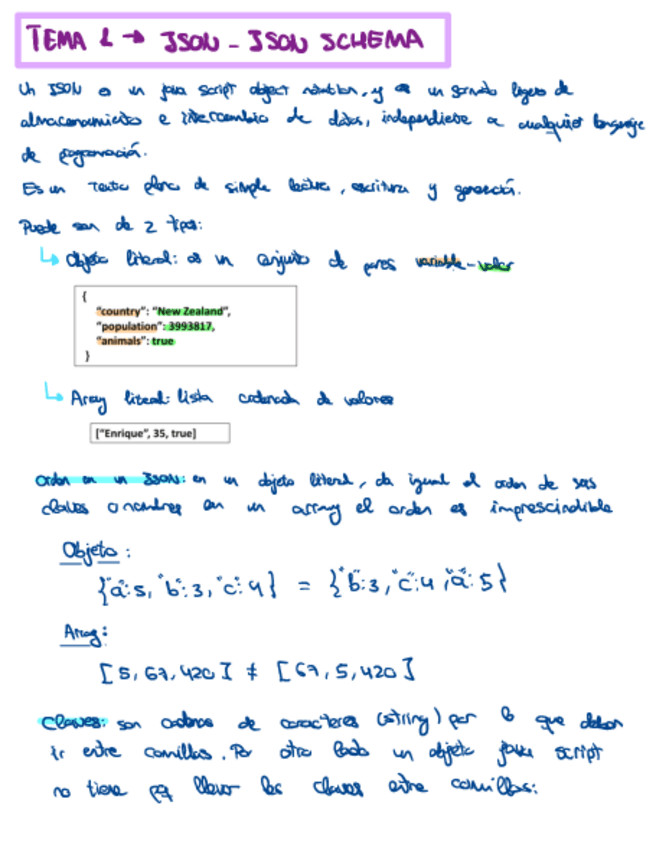 TEMA 1 → JSON - JSON SCHEMA
Un JSON es un java script object notation, y es un formato ligero de
almacenamiento e intercambio de datos, independiente a cualquier lenguaje
de programación.
Es un texto plano de simple lectura, escritura y generación.
Puede ser de 2 tipos:
↳ Objeto literal: es un conjunto de pares variable-valor
{
"country": "New Zealand",
"population": 3993817,
"animals": true
}
↳ Array literal: lista ordenada de valores
["Enrique", 35, true]
Orden en un JSON: en un objeto literal, da igual el orden de sus
claves o nombres en un array el orden es imprescindible
Objeto:
{"a":5, "b":3, "c":4} = {"b":3, "c":4, "a":5}
Array:
[5, 67, 420] ≠ [67, 5, 420]
Claves: son cadenas de caracteres (string) por lo que deben
ir entre comillas. Por otro lado un objeto java script
no tiene pq llevar las claves entre comillas: